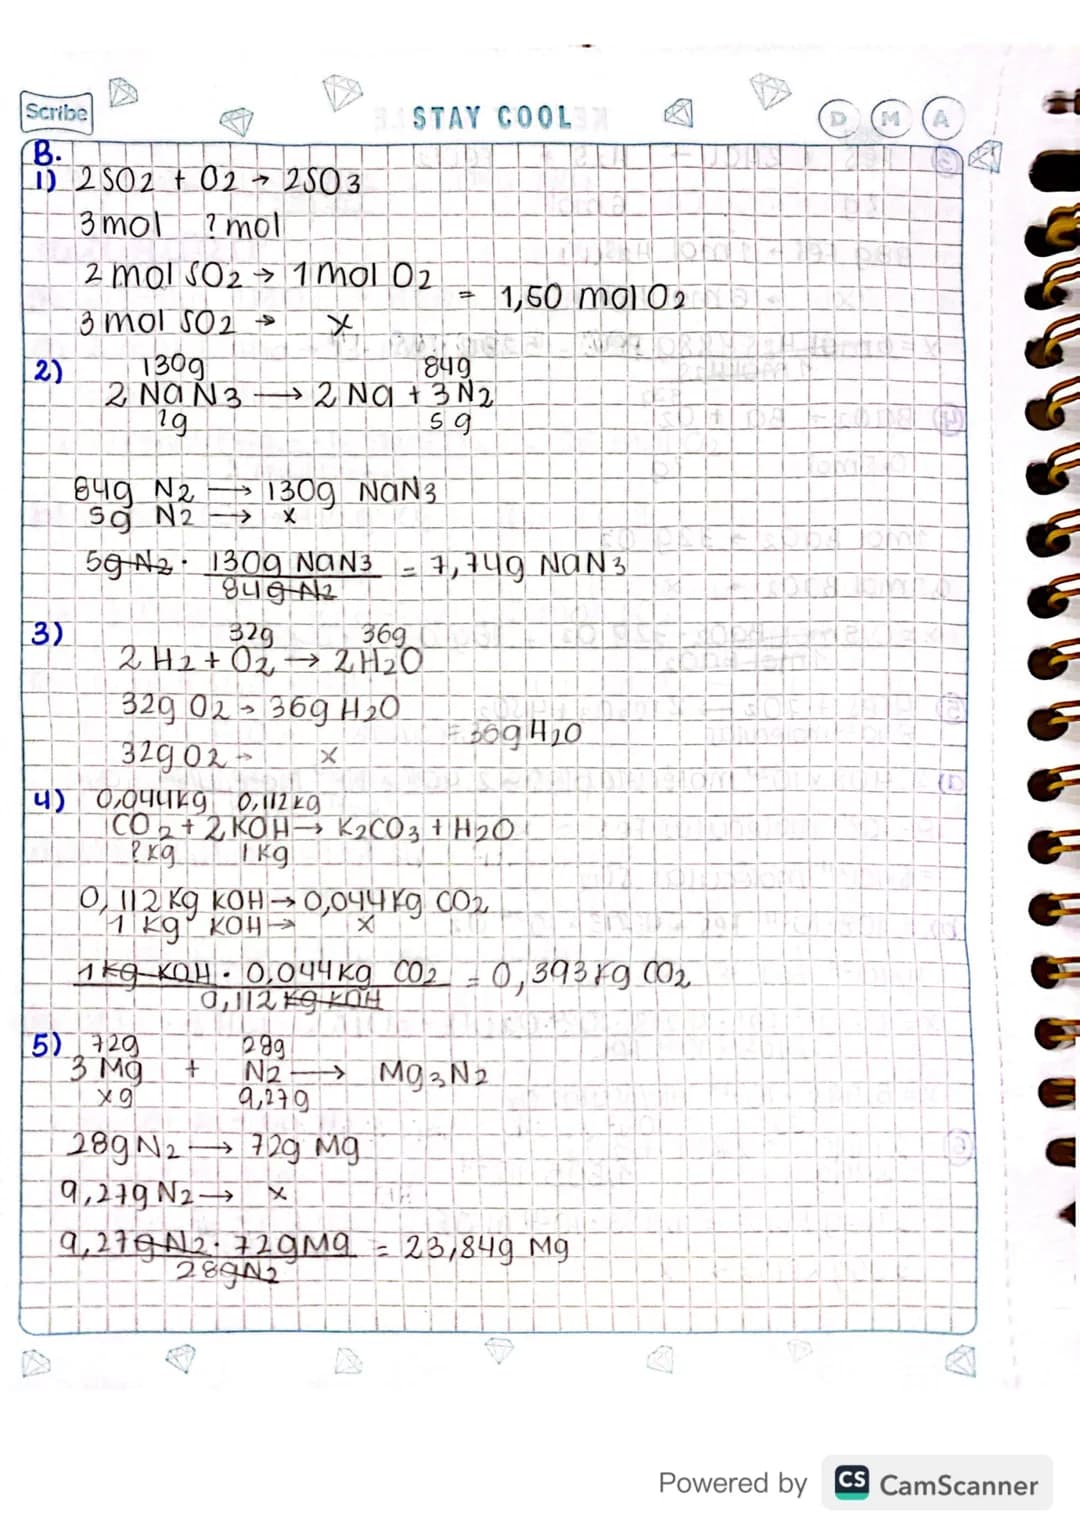 Scribe
STAY COOL
D M A
B.
1) 2SO2 + O2 → 2SO3
3 mol ? mol
2 mol SO2 → 1 mol O2
= 1,50 mol O2
3 mol SO2 → x
130g 84g
2) 2 NaN3 → 2 Na + 3 N2
?g 5 g
84g N2 → 130g NaN3
5g N2 → x
5g N2 · 130g NaN3 = 7,74g NaN3
84g N2
3) 32g 36g
2 H2 + O2 → 2 H2O
32g O2 → 36g H2O
= 36g H2O
32g O2 → x
4) 0,044Kg 0,112 kg
CO2 + 2 KOH → K2CO3 + H2O
? kg 1 Kg
0,112 Kg KOH → 0,044 Kg CO2
1 Kg KOH → x
1 Kg KOH · 0,044 Kg CO2 = 0,393 Kg CO2
0,112 Kg KOH
5) 72g 28g
3 Mg + N2 → Mg3N2
x g 9,27g
28g N2 → 72g Mg
9,27g N2 → x
9,27g N2 · 72g Mg = 23,84g Mg
28g N2
Powered by CS CamScanner